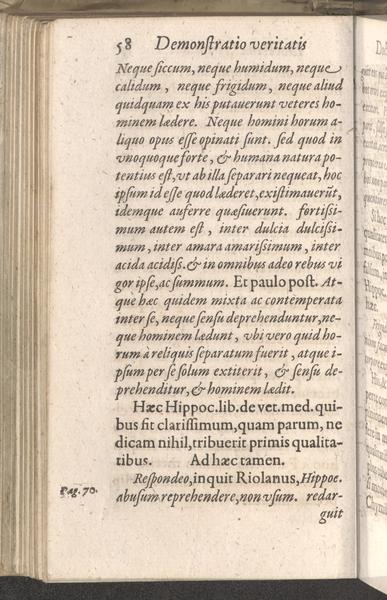 58 Demonſtratio veritatis
Neque ſiccum, neque humidum, neque
calidum, neque frigidum, neque aliud
quidquam ex his putauerunt veteres ho-
minem lædere. Neque homini horum a-
liquo opus eſſe opinati ſunt. ſed quod in
vnoquoque forte, & humana natura po-
tentius eſt, vt ab illa ſeparari nequeat, hoc
ipſum id eſſe quod læderet, exiſtimauerūt,
idemque auferre quæſiuerunt. fortiſſi-
mum autem eſt, inter dulcia dulciſſi-
mum, inter amara amariſſimum, inter
acida acidiſſ. & in omnibus adeo rebus vi
gor ipſe, ac ſummum. Et paulo poſt. At-
que hæc quidem mixta ac contemperata
inter ſe, neque ſenſu deprehenduntur, ne-
que hominem lædunt, vbi vero quid ho-
rum à reliquis ſeparatum fuerit, atque i-
pſum per ſe ſolum extiterit, & ſenſu de-
prehenditur, & hominem lædit.
Hæc Hippoc. lib. de vet. med. qui-
bus ſit clariſſimum, quam parum, ne
dicam nihil, tribuerit primis qualita-
tibus. Ad hæc tamen.
Reſpondeo, inquit Riolanus, Hippoc.
Pag. 70. abuſum reprehendere, non vſum. redar-
guit